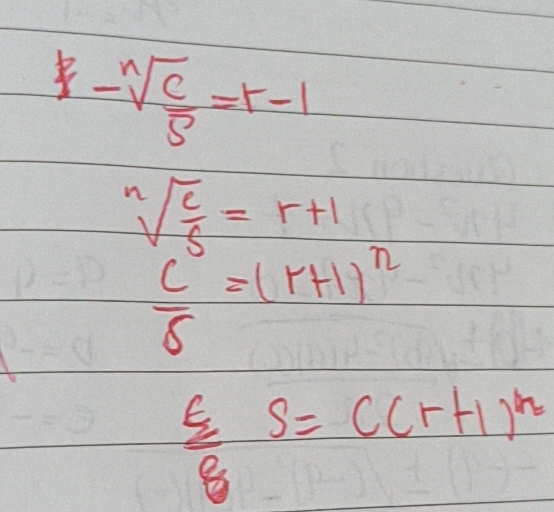 -ⁿ√(c/s) = r-1
ⁿ√(c/s) = r+1
c/s = (r+1)ⁿ
S = C(r+1)ⁿ